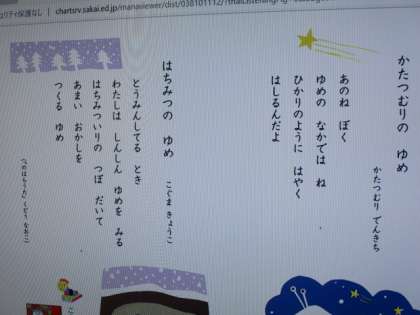 chartsrv.sakai.ed.jp/manaviewer/dist/038101112/
かたつむりの ゆめ
かたつむり でんきち
あのね ぼく
ゆめの なかでは ね
ひかりのように はやく
はしるんだよ
はちみつの ゆめ
こぐま きょうこ
とうみんしてる とき
わたしは しんしん ゆめを みる
はちみついりの つぼ だいて
あまい おかしを
つくる ゆめ
(「のはらうた」 くどう なおこ)